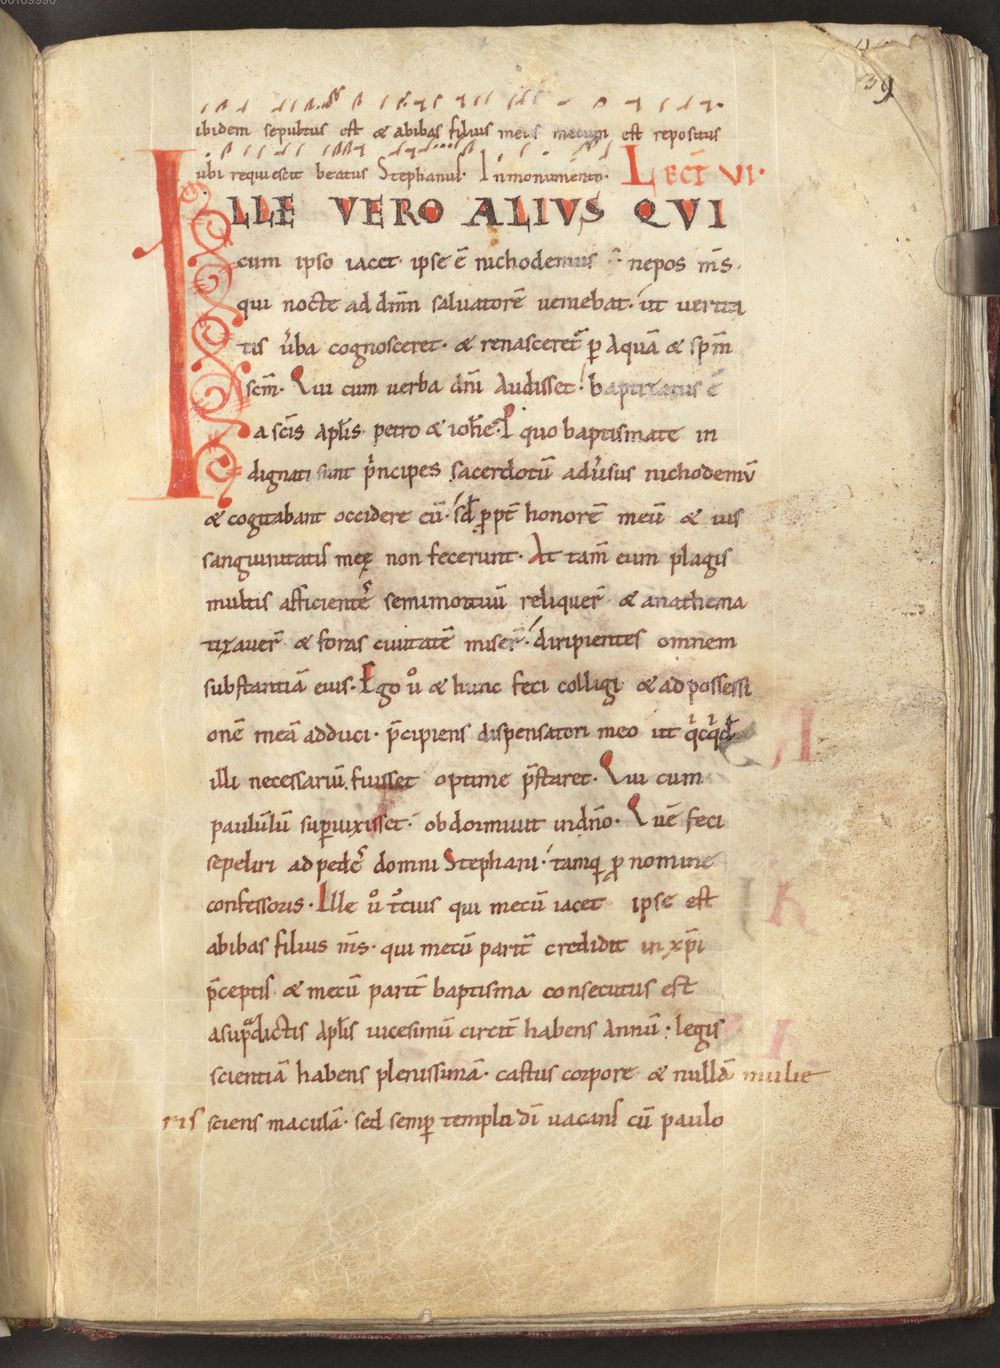 39
ibidem sepultus est & abibas filius meus mecum est repositus
ubi requiescit beatus Stephanus. In monumento. LECT̄ VI.
ILLE VERO ALIUS QVI
cum ipso iacet. ipse ē nichodemus nepos m̄s.
qui nocte ad dn̄m salvatorē veniebat. ut verita
tis v̄ba cognosceret. & renasceret᷑ p̄ Aquā & sp̄m
sc̄m. Qui cum verba dn̄i Audisset. baptizatus ē
a sc̄is apl̄is petro & ioh̄e. P quo baptismate in
dignati sunt p̄ncipes sacerdotū adv̄sus nichodemū
& cogitabant occidere eū. sed ꝓpt̄ honorē meū & ius
sanguinitatis meę non fecerunt. At tam̄ eum plagis
multis afficientes semimortuū reliquer̄ & anathema
tizaver̄ & foras civitatē miser̄. diripientes omnem
substantiā eius. Ego ů & hunc feci colligi & ad possessi
onē meā adduci. p̄cipiens dispensatori meo ut qͥcqͥd
illi necessariū fuisset optime p̄staret. Qui cum
paulūlū suꝑvixisset. obdormivit in dn̄o. Quē feci
sepeliri ad pedes domni Stephani. tamq ꝓ nomine
confessoris. Ille ů t̄cius qui mecū iacet ipse est
abibas filius m̄s. qui mecū parit̄ credidit in xp̄i
p̄ceptis & mecū parit̄ baptisma consecutus est
a sup̄dictis apl̄is vicesimū circit̄ habens annū. legis
scientiā habens plenissimā. castus corpore & nullā mulie
ris sciens maculā. sed semꝑ templi dī vacans cū paulo